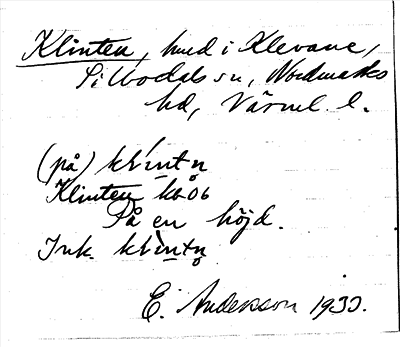 Klinten, hmd i Klevane,
Sillbodals sn, Nordmarks
hd, Värml. l.
(på) klintn̥
Klinten kbO6
På en höjd.
Ink. klintn̥
E. Andersson 1933.